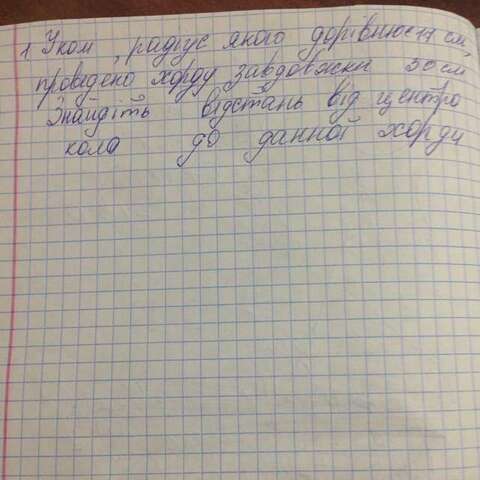 1. У колі, радіус якого дорівнює 17 см,
проведено хорду завдовжки 30 см
Знайдіть відстань від центро
кола до данної хорди